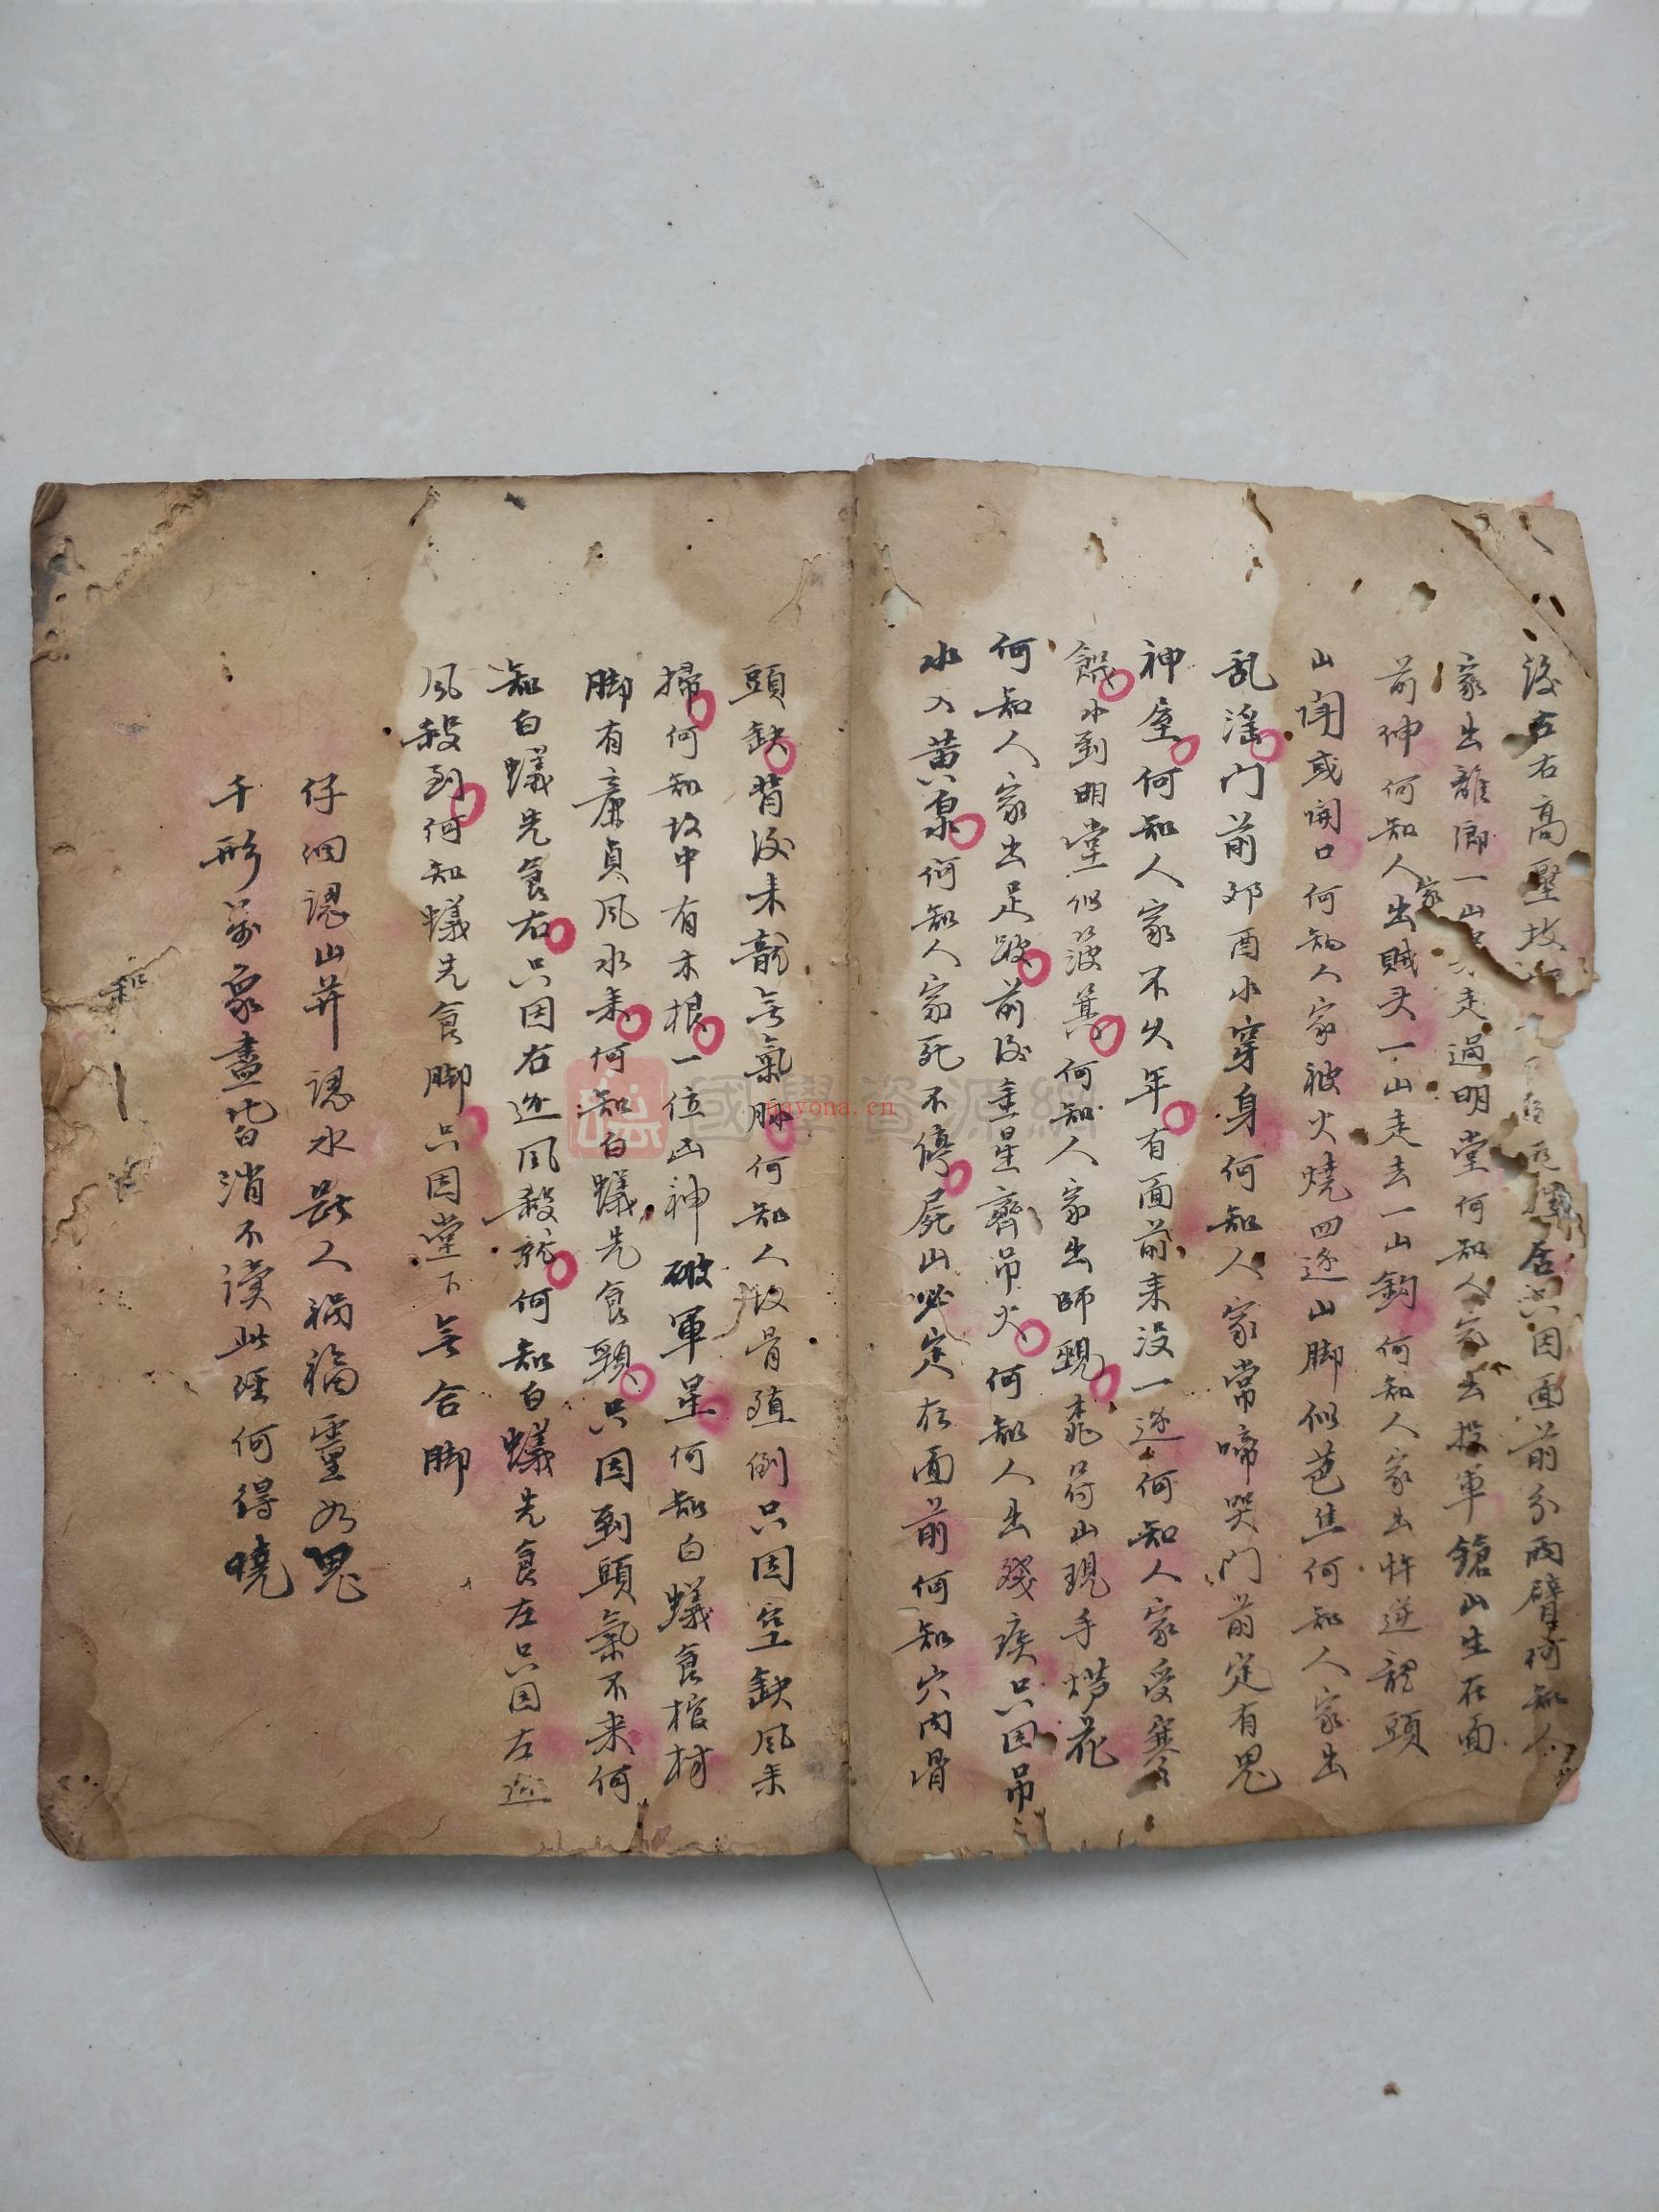 後左右高壓坟居只因面前分兩臂何知人
家出離鄉一山走過明堂何知人家出投軍鎗山生在面
前伸何知人家出賊头一山走去一山鈎何知人家出忤逆龍頭
山開或開口何知人家被火燒四边山脚似芭焦何知人家出
乱滛门前邜酉水穿身何知人家常啼哭门前定有鬼
神屋何知人家不久年有面前来没一边何知人家受寒
餓水到明堂似簸箕何知人家出師覡符山現手搭花
何知人家出足跛前後星齊吊火何知人出殘疾只因吊
水入黄泉何知人家死不停屍山必定在面前何知穴内骨
頭缺背後来龍无氣脉何知人坟骨殖倒只因空缺風来
掃何知坟中有木根一位凶神破軍星何知白蟻食棺材
脚有廉貞風水来何知白蟻先食頭只因到頭氣不来何
知白蟻先食右只因右边風殺就何知白蟻先食左只因左边
風殺到何知蟻先食脚只因堂下无合脚
仔细認山并認水断人禍福靈如鬼
千形萬象盡皆消不读此经何得曉
國學資源網
nayona.cn